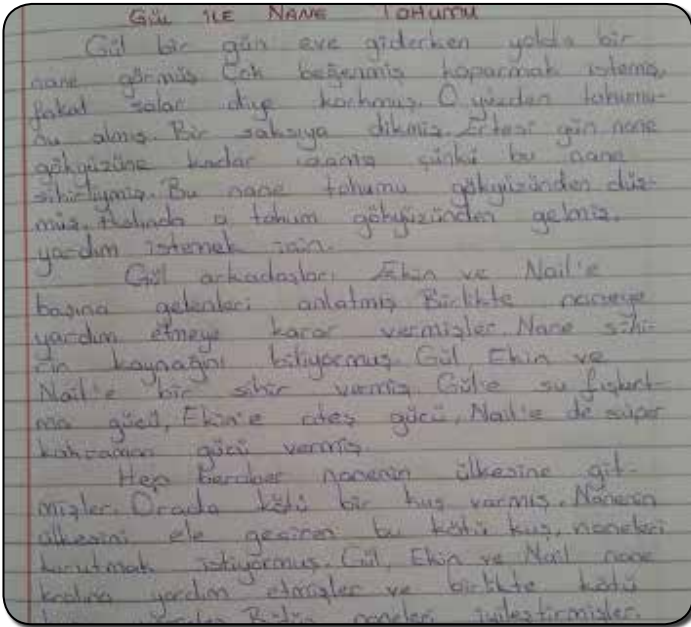 GÜL İLE NANE TOHUMU
Gül bir gün eve giderken yolda bir
nane görmüş. Çok beğenmiş koparmak istemiş,
fakat solar diye korkmuş. O yüzden tohumu-
nu almış. Bir saksıya dikmiş. Ertesi gün nane
gökyüzüne kadar uzamış çünkü bu nane
sihirliymiş. Bu nane tohumu gökyüzünden düş-
müş. Aslında o tohum gökyüzünden gelmiş.
yardım istemek için.
Gül arkadaşları Ekin ve Nail'e
başına gelenleri anlatmış. Birlikte naneye
yardım etmeye karar vermişler. Nane sihi-
rin kaynağını biliyormuş. Gül Ekin ve
Nail'e bir sihir vermiş. Gül'e su fışkırt-
ma gücü, Ekin'e ateş gücü, Nail'e de süper
kahraman gücü vermiş.
Hep beraber nanenin ülkesine git-
mişler. Orada kötü bir kuş varmış. Nanenin
ülkesini ele geçiren bu kötü kuş, naneleri
kurutmak istiyormuş. Gül, Ekin ve Nail nane
kralına yardım etmişler ve birlikte kötü
Bütün naneleri iyileştirmişler.